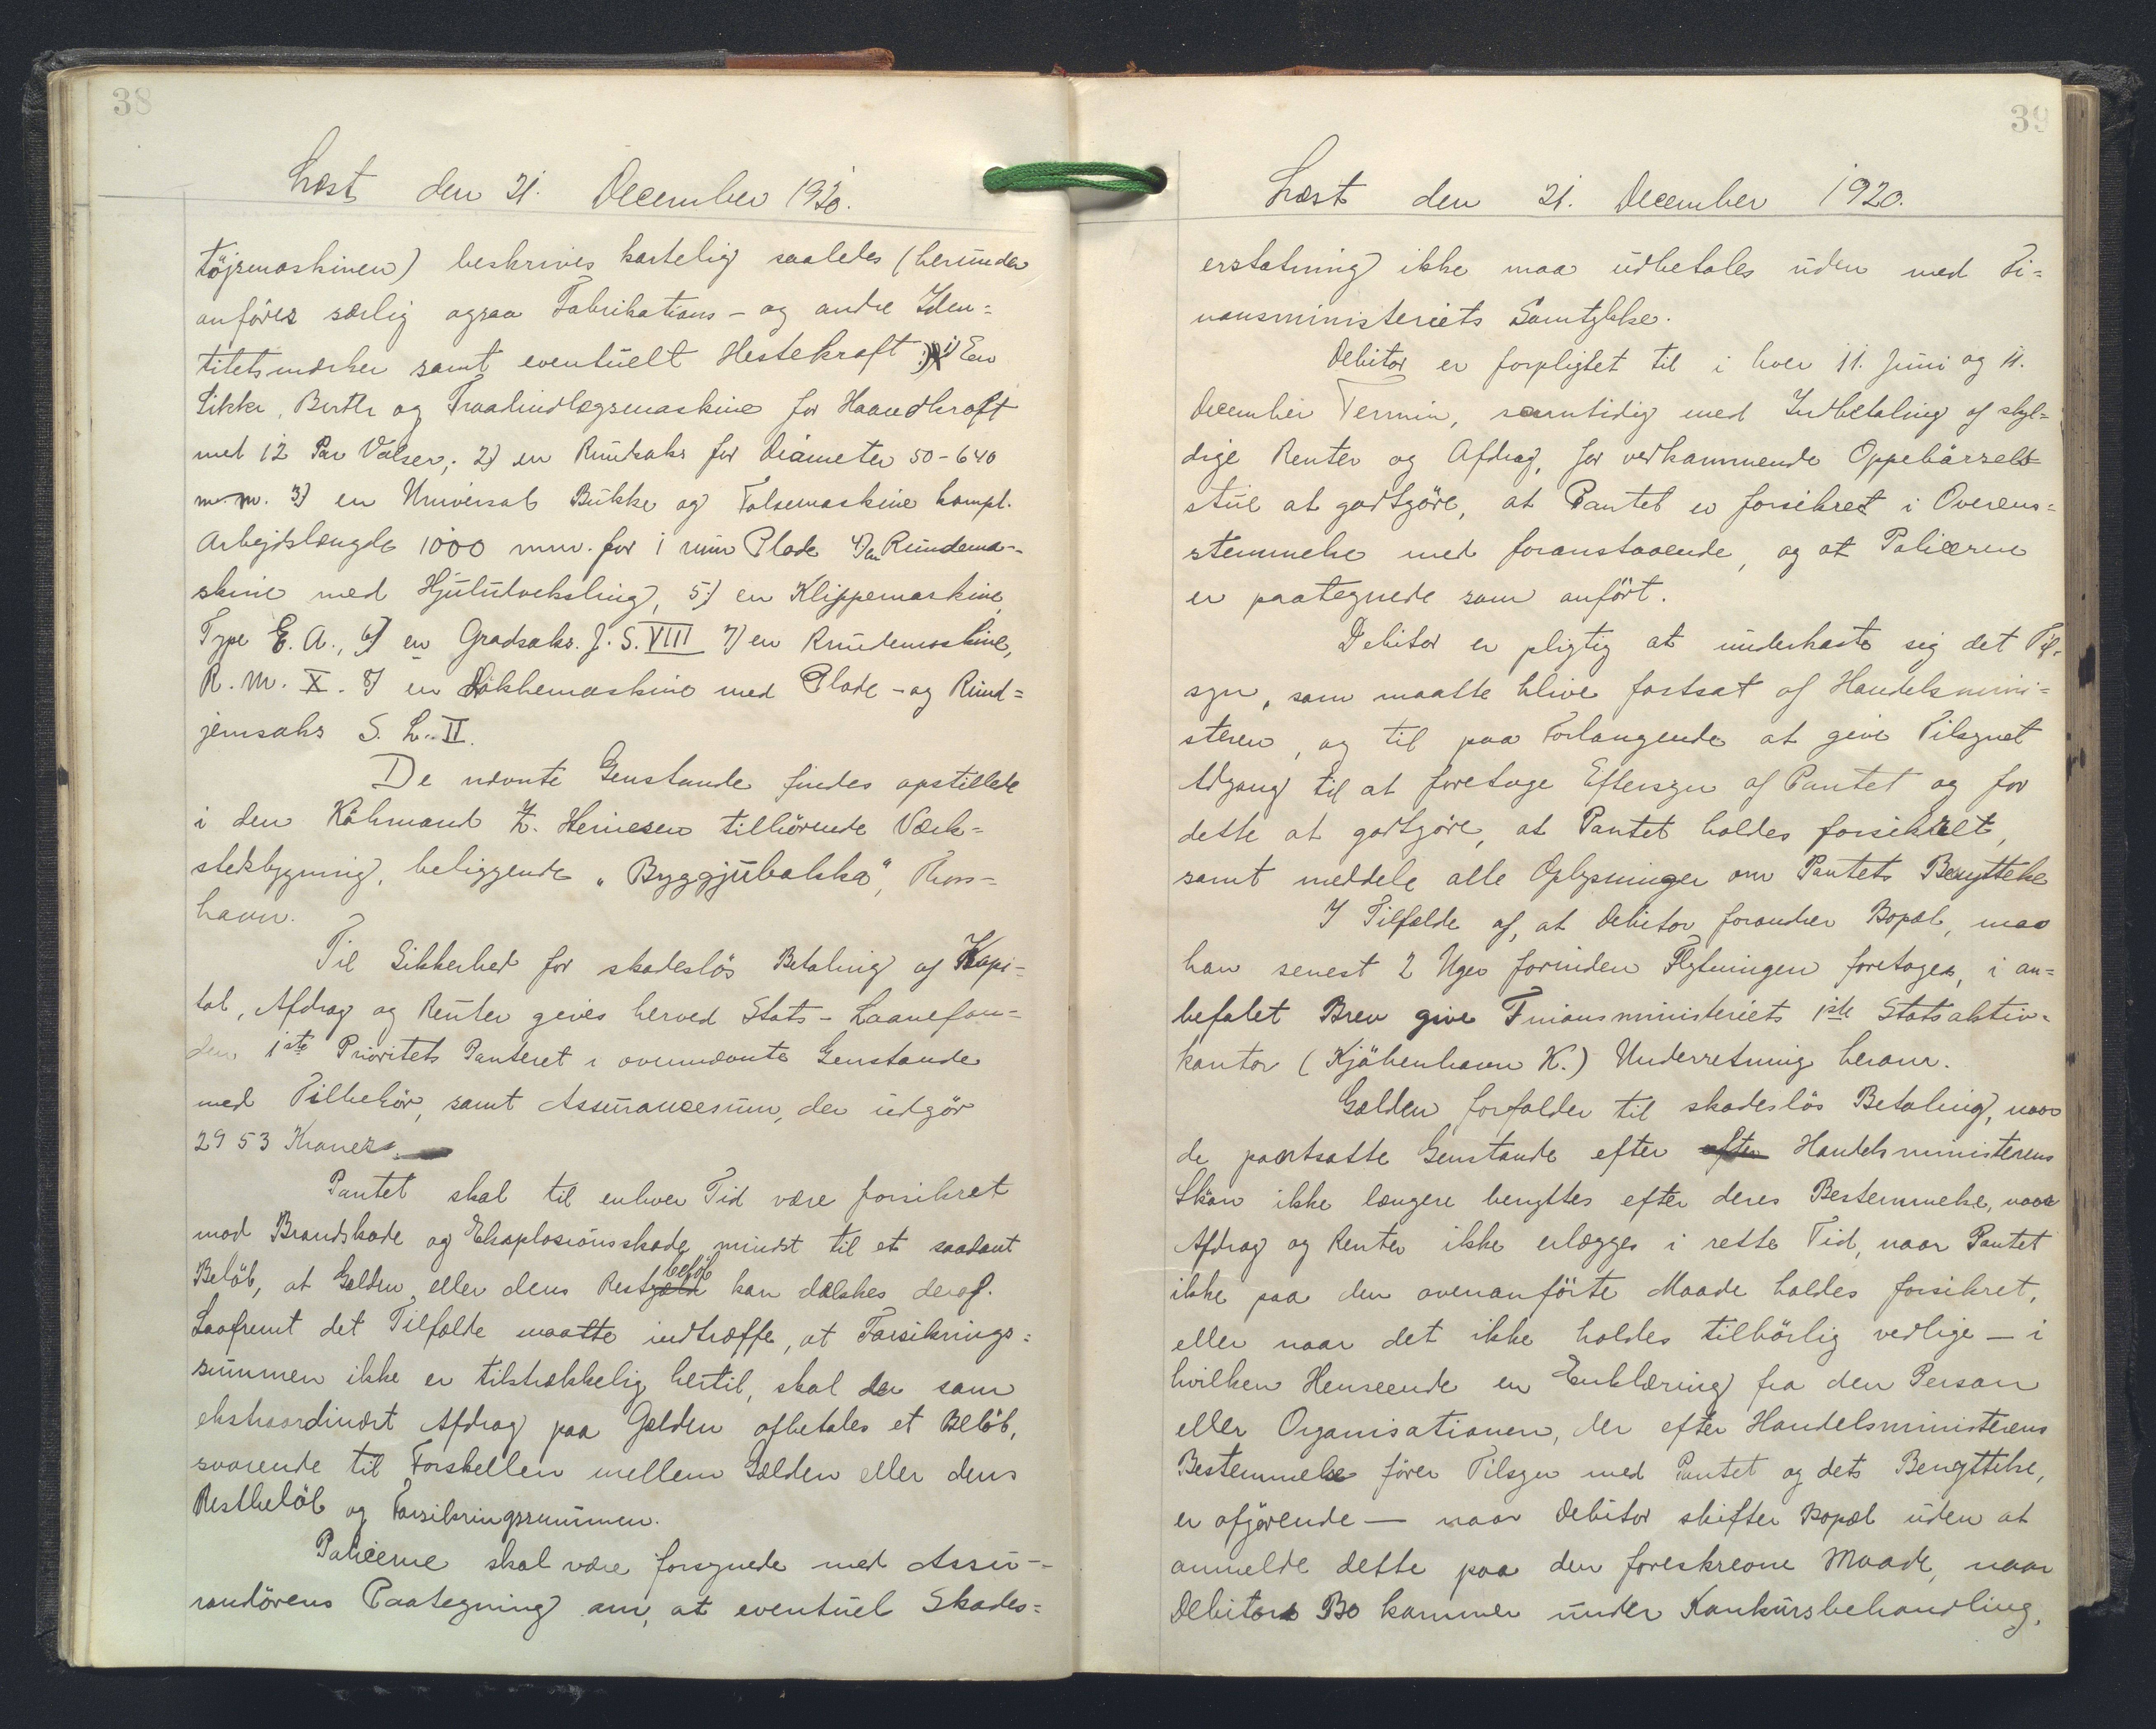 38
Læst den 21. December 1920.
töjsmaskinen) beskrives kortelig saaledes (herunder
anföres særlig ogsaa Fabrikations- og andre Iden=
titetsmærker samt eventuelt Hestekraft:) 1) En
Sikke, Bertle og Traadindlægsmaskine for Haandkraft
med 12 Par Valser; 2) en Rundsaks for Diameter 50-640
m.m. 3) en Universal Bukke og Falsemaskine kompl.
Arbejdslængde 1000 mm. for 1 mm Plade 4) en Rundema-
skine med Hjuludveksling, 5) en Klippemaskine
Type E. A., 6) en Gradsaks. J. S. VIII 7) en Rundemaskine,
R. M. X. 8) en Lokkemaskine med Plade- og Rund=
jernsaks S. L. II.
De nævnte Genstande findes opstillede
i den Köbmand Z. Heinesen tilhörende Værk=
stedsbygning, beliggende „Byggjubakka“, Thors=
havn.
Til Sikkerhed for skadeslös Betaling af Kapi=
tal, Afdrag og Renter gives herved Stats-Laanefon=
den 1ste Prioritets Panteret i ovennævnte Genstande
med Tilbehör, samt Assurancesum, der udgör
2953 Kroner.
Pantet skal til enhver Tid være forsikret
mod Brandskade og Eksplosionsskade mindst til et saadant
Belöb, at Gælden eller dens Restgæld belöb kan dækkes deraf.
Saafremt det Tilfælde maatte indtræffe, at Forsikrings=
summen ikke er tilstrækkelig hertil, skal der som
ekstraordinært Afdrag paa Gælden afbetales et Belöb,
svarende til Forskellen mellem Gælden eller dens
Restbelöb og Forsikringssummen.
Policerne skal være forsynede med Assu-
randörens Paategning om, at eventuel Skades=
39
Læst den 21. December 1920.
erstatning ikke maa udbetales uden med Fi=
nansministeriets Samtykke.
Debitor er forpligtet til i hver 11. Juni og 11.
December Termin, samtidig med Indbetaling af skyl=
dige Renter og Afdrag, for vedkommende Oppebörsels
stue at godtgöre, at Pantet er forsikret i Overens=
stemmelse med foranstaaende, og at Policerne
er paategnede som anfört.
Debitor er pligtig at underkaste sig det Til-
syn, som maatte blive fastsat af Handelsmini=
steren, og til paa Forlangende at give Tilsynet
Adgang til at foretage Eftersyn af Pantet og for
dette at godtgöre, at Pantet holdes forsikret,
samt meddele alle Oplysninger om Pantets Benyttelse
I Tilfælde af, at Debitor forandrer Bopæl, maa
han senest 2 Uger forinden Flytningen foretages, i an=
befalet Brev give Finansministeriets 1ste Statsaktiv-
kontor (Kjöbenhavn K.) Underretning herom.
Gælden forfalder til skadeslös Betaling, naar
de pantsatte Genstande efter efter Handelsministerens
Skön ikke længere benyttes efter deres Bestemmelse, naar
Afdrag og Renter ikke erlægges i rette Tid, naar Pantet
ikke paa den ovenanförte Maade holdes forsikret,
eller naar det ikke holdes tilbörlig vedlige — i
hvilken Henseende en Erklæring fra den Person
eller Organisationen, der efter Handelsministerens
Bestemmelse förer Tilsyn med Pantet og dets Benyttelse,
er afgörende — naar Debitor skifter Bopæl uden at
anmelde dette paa den foreskrevne Maade, naar
Debitors Bo kommer under Konkursbehandling,